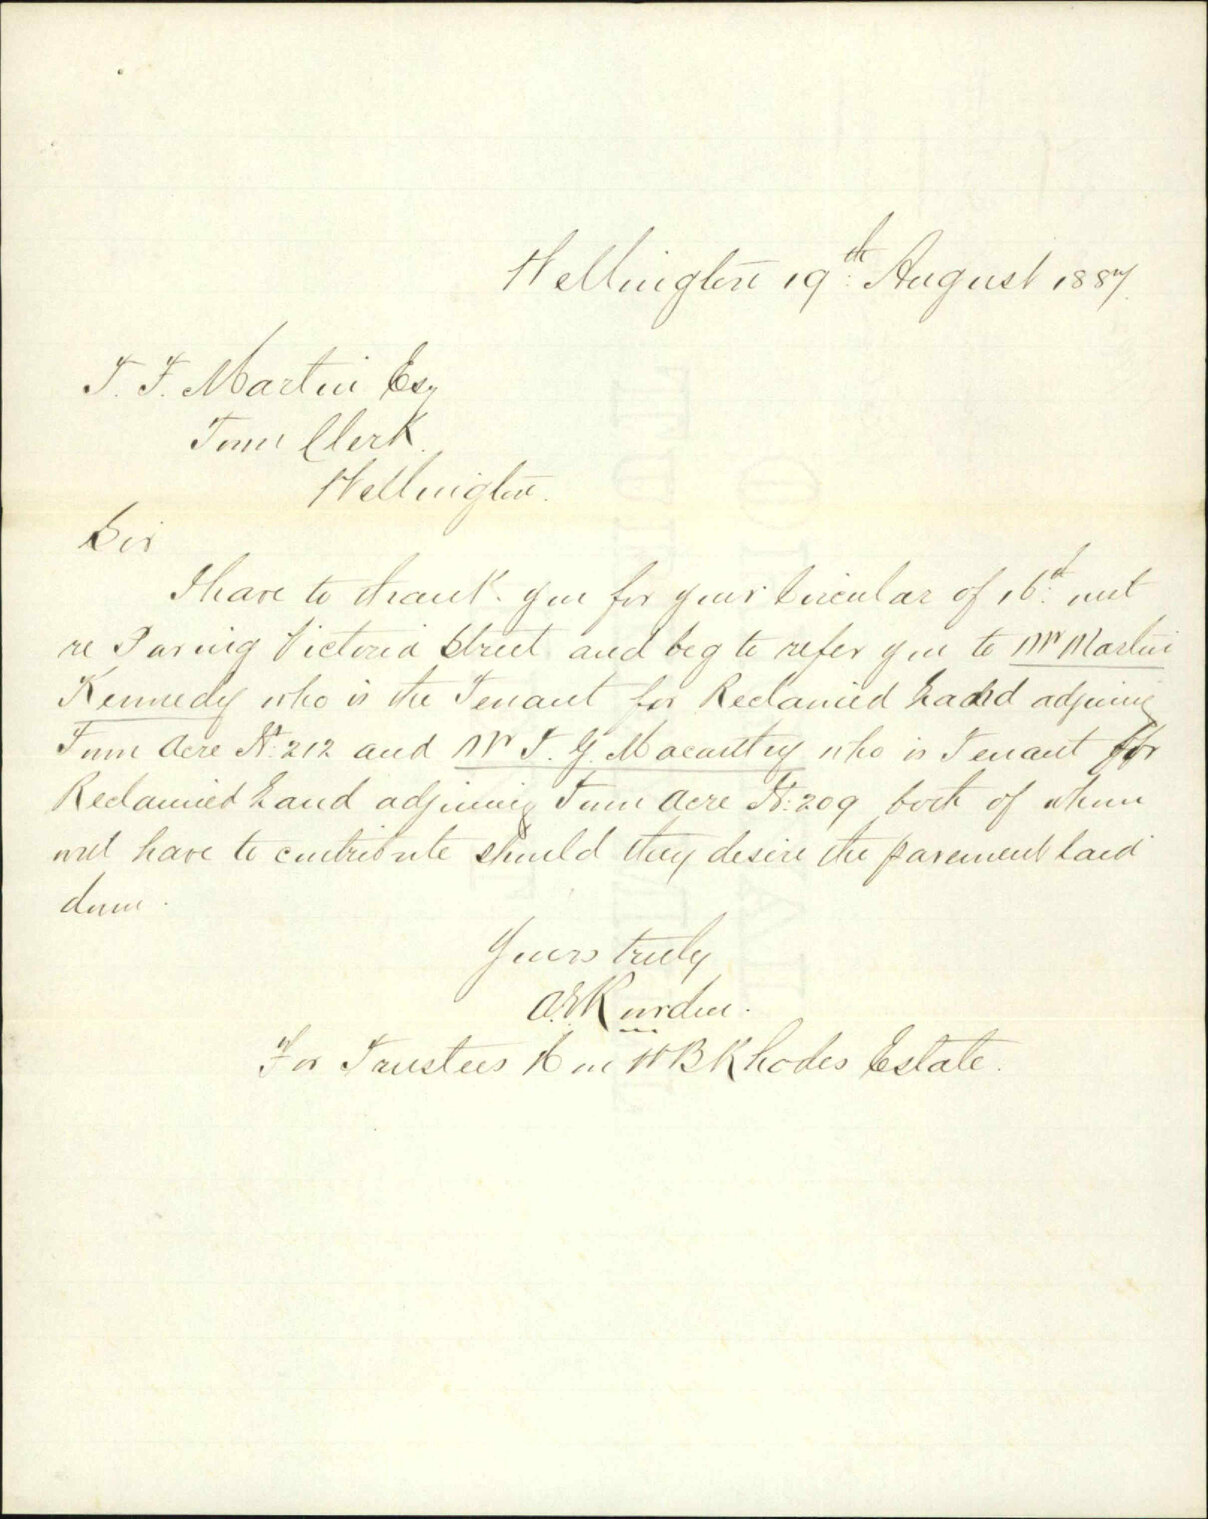 Wellington 19th August 1887.
J. F. Martin Esq
Town Clerk.
Wellington.
Sir
I have to thank you for your Circular of 16th inst
re Paving Victoria Street and beg to refer you to Mr Martin
Kennedy who is the Tenant for Reclaimed Land adjoining
Town Acre No: 212 and Mr T. G. Macarthy who is Tenant for
Reclaimed Land adjoining Town Acre No: 209 both of whom
will have to contribute should they desire the pavement laid
down.
Yours truly
For Trustees Hon W B Rhodes Estate.